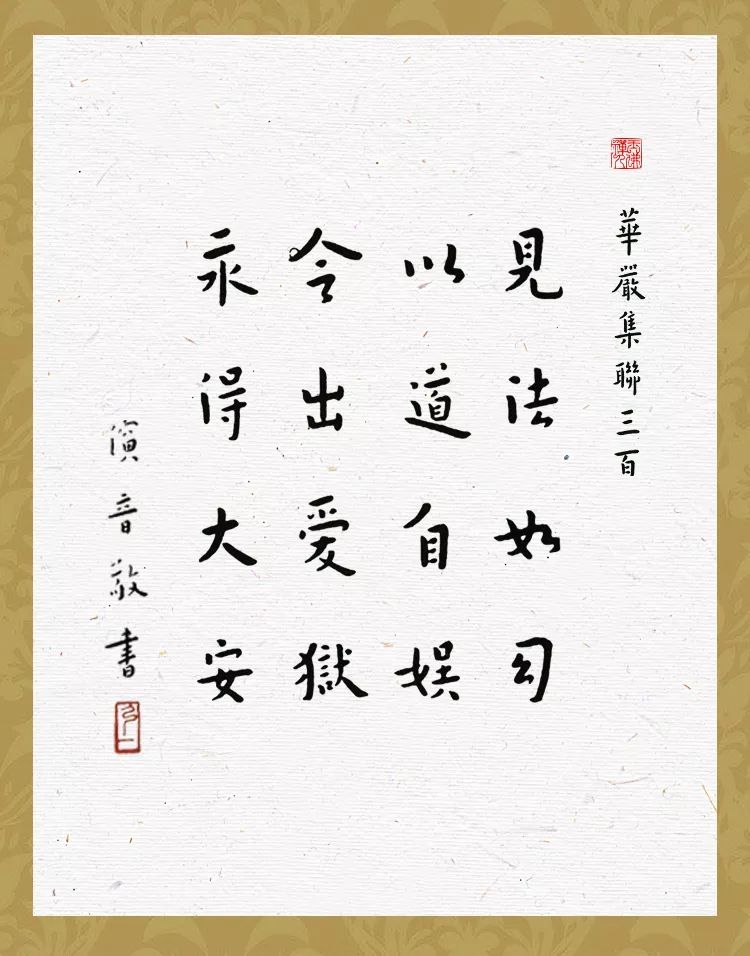 華嚴集聯三百
見法如幻
以道自娛
令出愛獄
永得大安
演音敬書
弘一